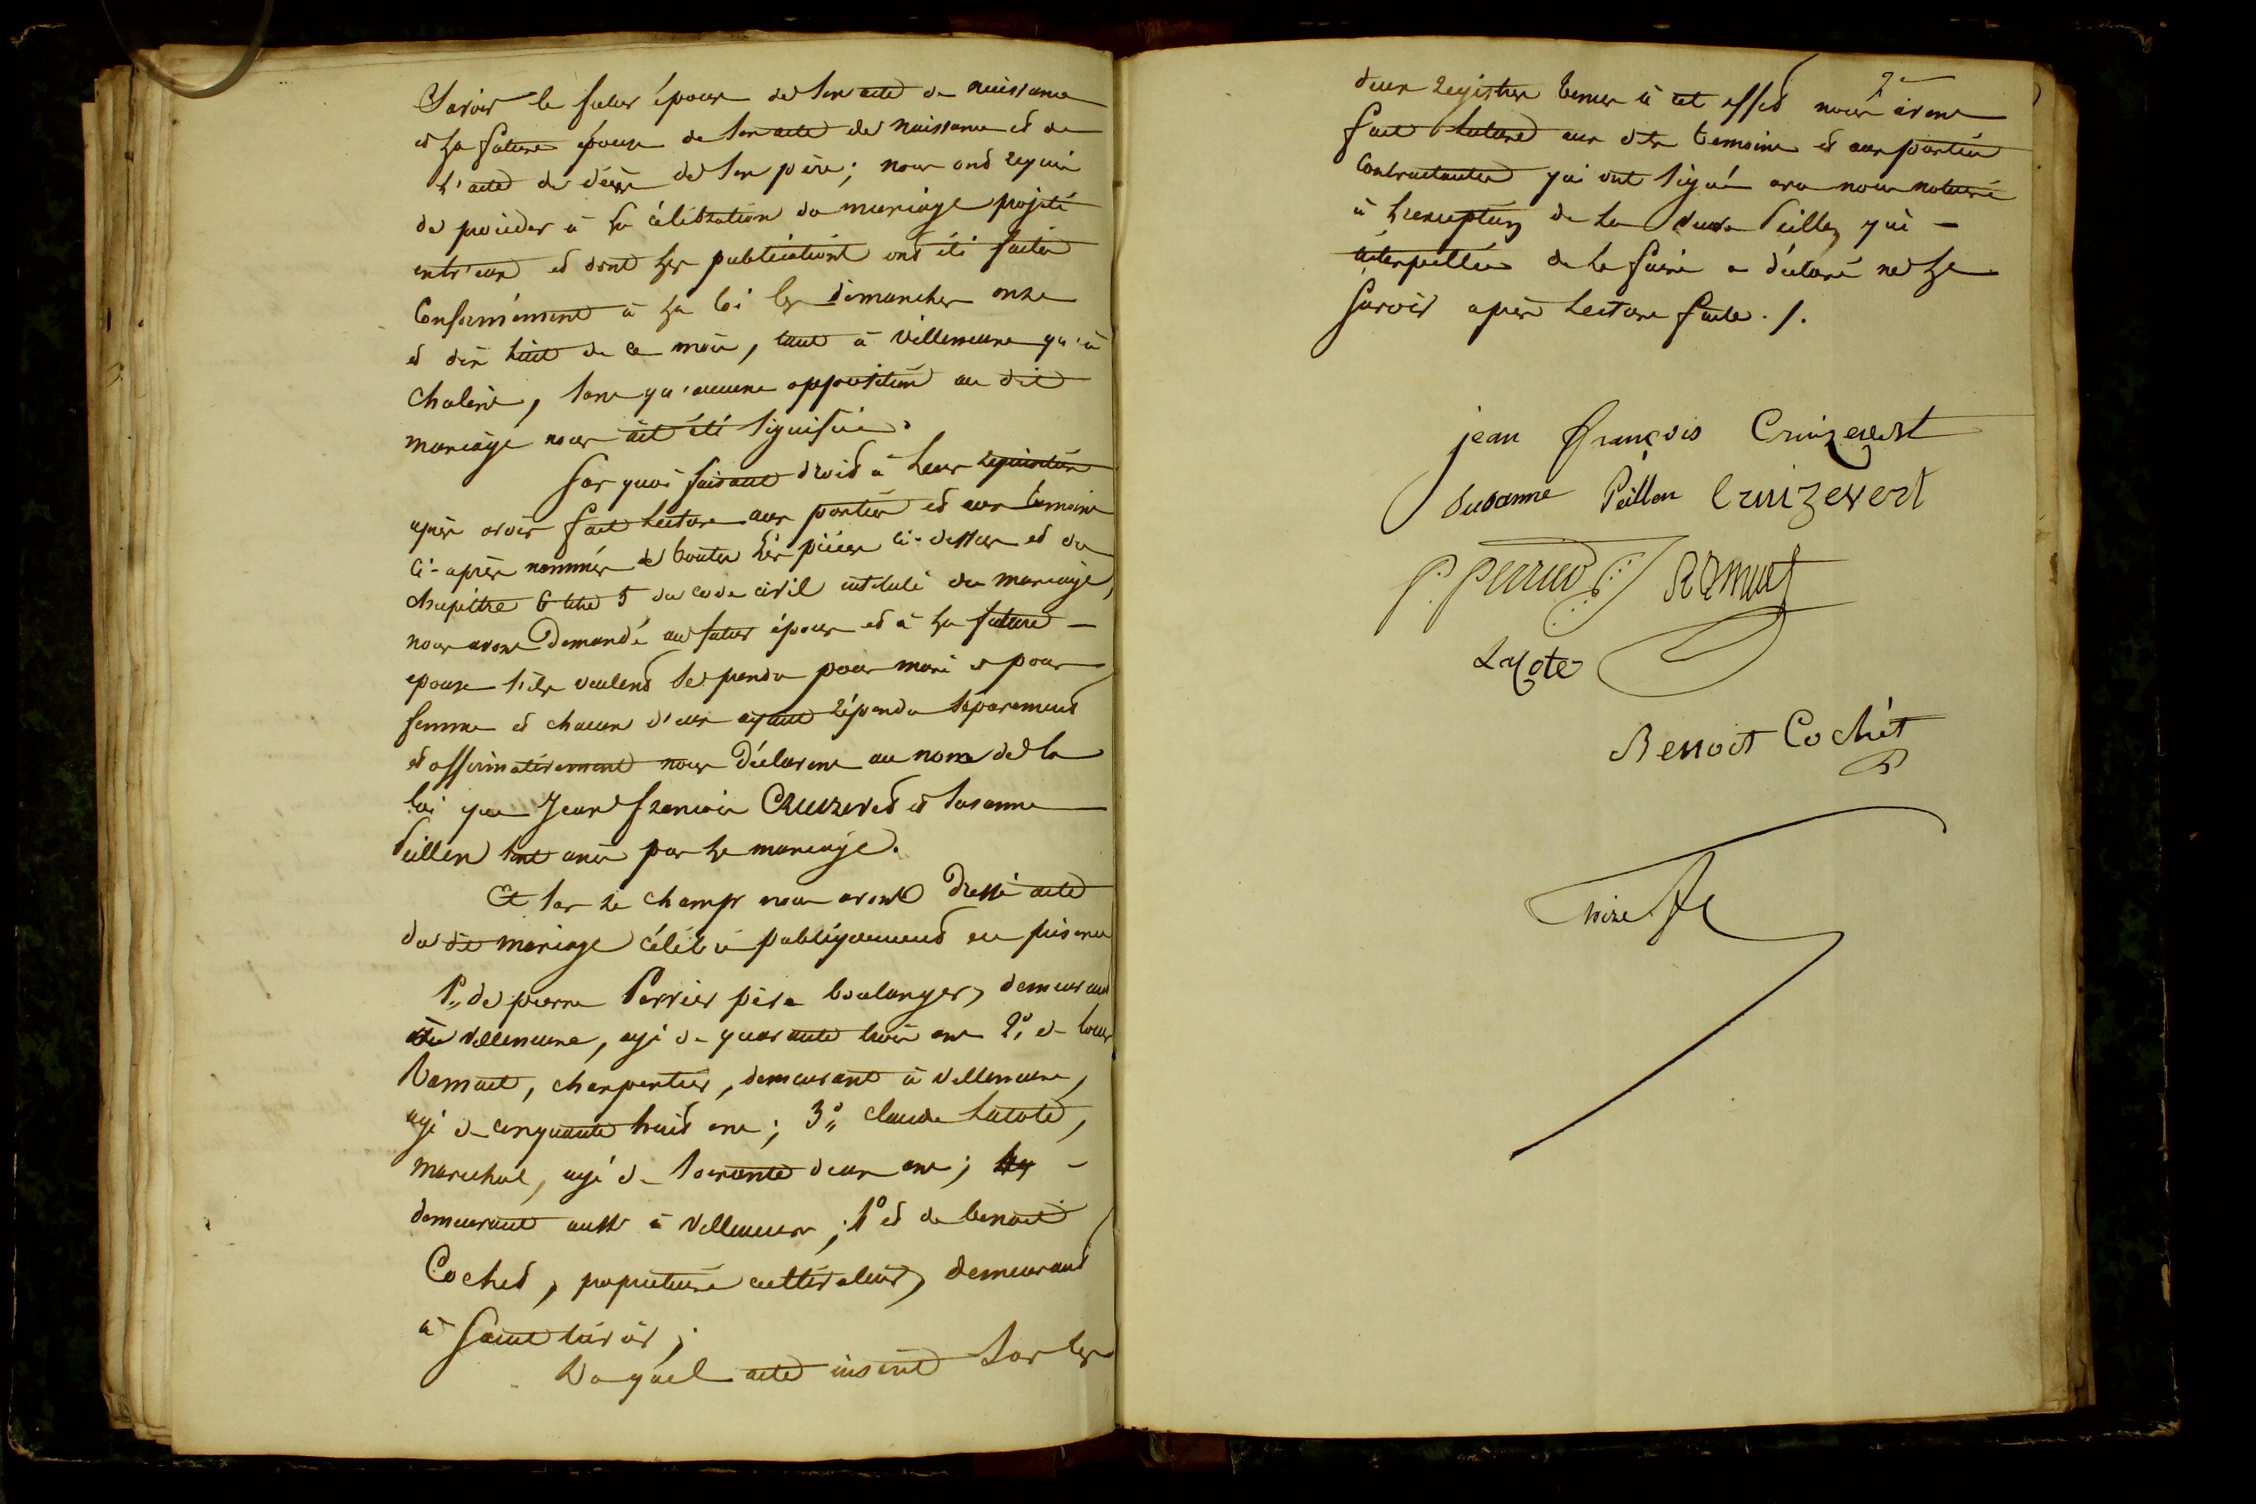 Savoir le futur époux de son acte de naissance
et la future épouse de son acte de naissance et de
l'acte de décès de son père; nous ont requis
de procéder à la célébration du mariage projeté
entr'eux et dont les publications ont été faites
Conformément à la loi les dimanches onze
et dix huit de ce mois, tant à Villemeure qu'à
, sans qu'aucune opposition au dit
mariage nous ait été signifiée.
Sur quoi faisant droit à leur requisition
après avoir fait lecture aux parties et aux temoins
ci-après nommés de toutes les pièces ci-dessus et du
chapitre 6 titre 5 du code civil intitulé du mariage,
nous avons Demandé au futur époux et à la future
epouse s'ils veulent se prendre pour mari et pour
femme et chacun d'eux ayant répondu séparement
et affirmativement nous Déclarons au nom de la
loi que Jean françois Cruizevert et Susanne
Peillon sont unis par le mariage.
Et sur le champs nous avons Dressé acte
du dit mariage célébré publiquement en présence
1° de pierre Perrier père boulanger, demeurant
à Villemeure, agé de quarante trois ans 2° de louis
Ramuet, charpentier, demeurant à Villemeure,
agé de cinquante huit ans; 3° claude Lacote,
marechal, agé de soixante deux ans;
demeurant aussi à Villemeure; 4° et de benoit
Cochet, propriétaire cultivateur, demeurant
à Saint ;
Duquel acte inscrit sur les
2e
deux registres tenus à cet effet nous avons
fait lecture aux dits temoins et aux parties
Contractantes qui ont signé avec nous notaire
à l'exception de la Peillon qui
interpellée de le faire a déclaré ne le
Savoir après Lecture faite ./.
jean François Cruizevert
Susanne Peillon Cruizevert
P. Perrier Ramuet
Lacote
Benoit Cochét